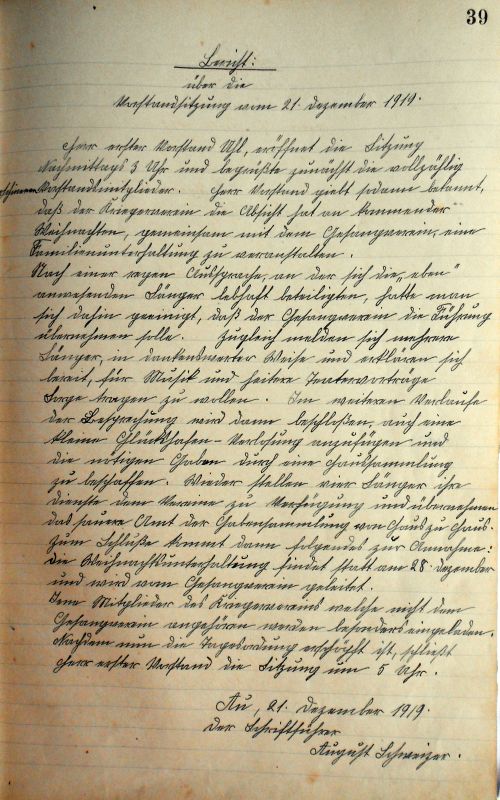 39
Bericht:
über die
Vorstandsitzung vom 21. Dezember 1919.
Herr erster Vorstand Uhl, eröffnet die Sitzung
Nachmittags 3 Uhr und begrüßte zunächst die vollzählig
erschienenen Vorstandsmitglieder. Herr Vorstand giebt sodann bekannt,
daß der Kriegerverein die Absicht hat an kommender
Weihnachten, gemeinsam mit dem Gesangverein, eine
Familienunterhaltung zu veranstalten.
Nach einer regen Aussprache, an der sich die „eben"
anwesenden Sänger lebhaft beteiligten, hatte man
sich dahin geeinigt, daß der Gesangverein die Führung
übernehmen solle. Zugleich melden sich mehrere
Sänger, in dankenswerter Weise und erklären sich
bereit, für Musik und heitere Teatervorträge
Sorge tragen zu wollen. Im weiteren Verlaufe
der Besprechung wird dann beschloßen, auch eine
kleine Glückshafen-Verlosung anzufügen und
die nötigen Gaben durch eine Haussammlung
zu beschaffen. Wieder stellen vier Sänger ihre
Dienste dem Vereine zu Verfügung und übernehmen
das sauere Amt der Gabensammlung von Haus zu Haus.
Zum Schluße kommt dann folgendes zur Annahme:
Die Weihnachtsunterhaltung findet statt am 28. Dezember
und wird vom Gesangverein geleitet.
Jene Mitglieder des Kriegervereins welche nicht dem
Gesangverein angehören werden besonders eingeladen.
Nachdem nun die Tagesordnung erschöpft ist, schließt
Herr erster Vorstand die Sitzung um 5 Uhr.
Au, 21. Dezember 1919.
Der Schriftführer
August Schweizer.